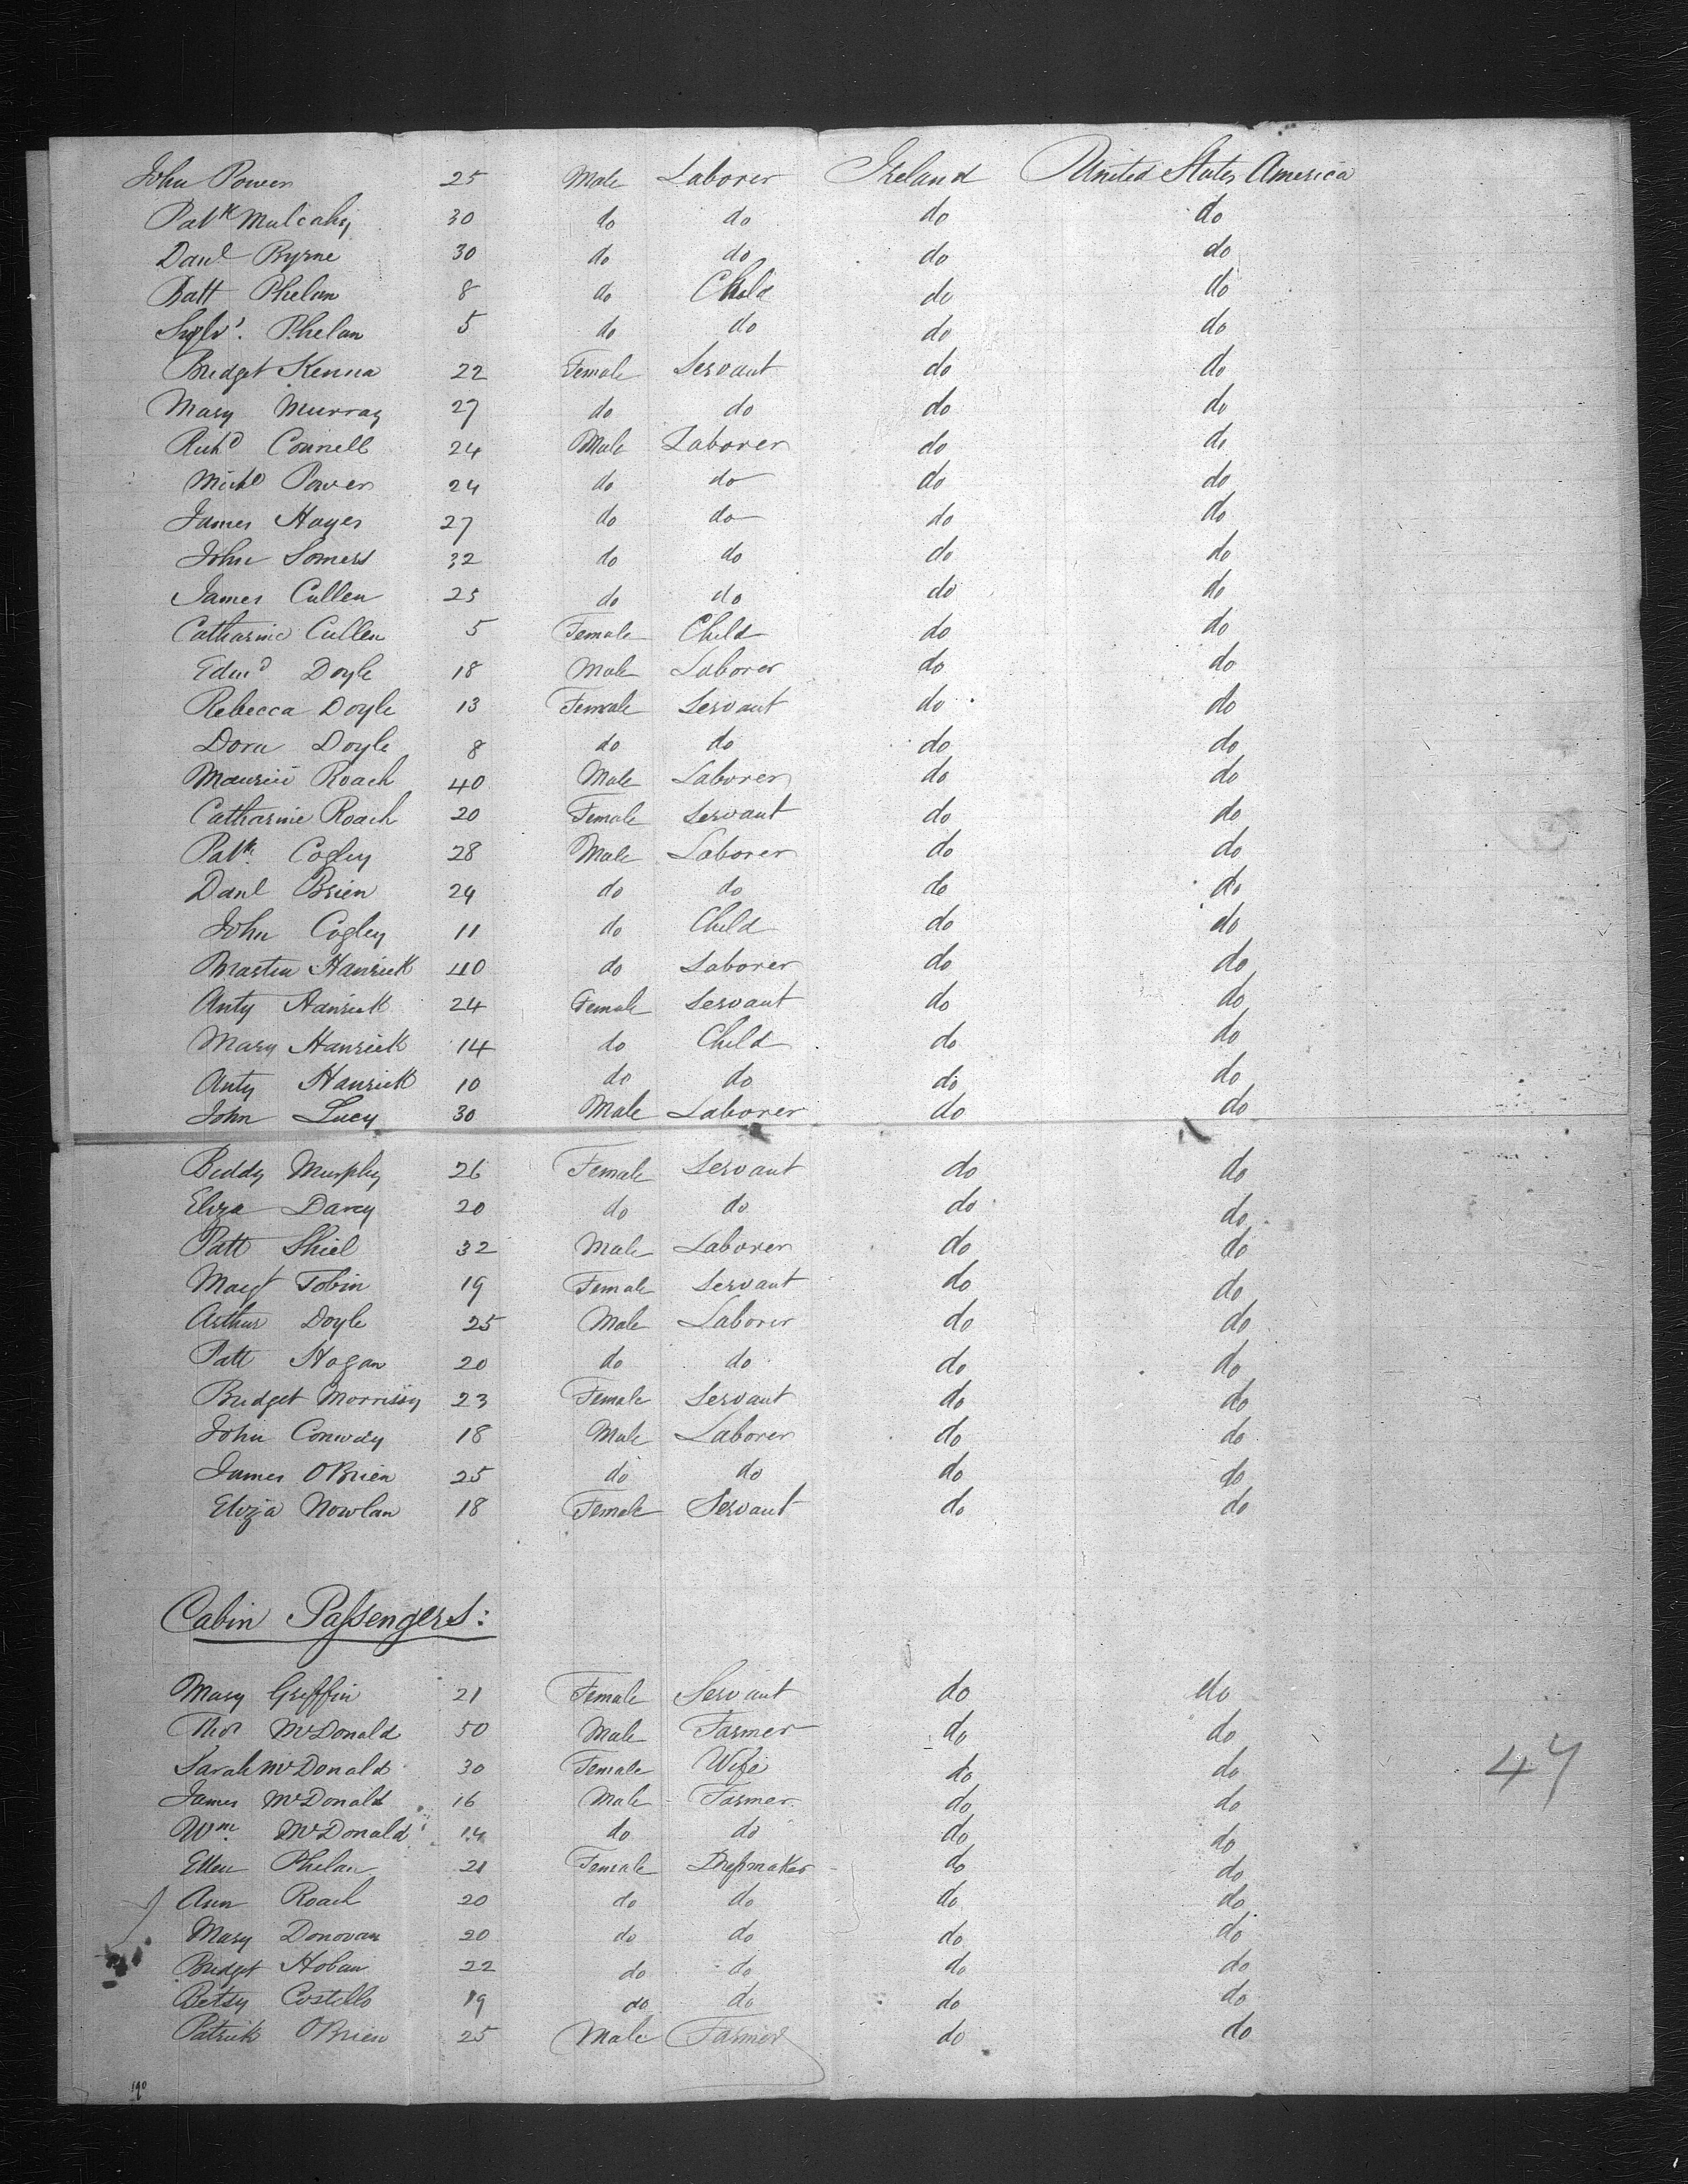 John Power 25 Male Laborer Ireland United States America
Patk Mulcahy 30 do do do do
Danl Byrne 30 do do do do
Batt Phelan 8 do Child do do
Phelan 5 do do do do
Bridget Kenna 22 Female Servant do do
Mary Murray 27 do do do do
Richd Connell 24 Male Laborer do do
Michl Power 24 do do do do
James Hayes 27 do do do do
John Somers 32 do do do do
James Cullen 25 do do do do
Catharine Cullen 5 Female Child do do
Edwd Doyle 18 Male Laborer do do
Rebecca Doyle 13 Female Servant do do
Dora Doyle 8 do do do do
Maurice Roach 40 Male Laborer do do
Catharine Roach 20 Female Servant do do
Patk. Cogley 28 Male Laborer do do
Danl Brien 24 do do do do
John Cogley 11 do Child do do
Martin Hanrick 40 do Laborer do do
Anty Hanrick 24 Female Servant do do
Mary Hanrick 14 do Child do do
Anty Hanrick 10 do do do do
John Lucy 30 Male Laborer do do
Biddy Murphy 26 Female Servant do do
Eliza Darcy 20 do do do do
Patt Shiel 32 Male Laborer do do
Margt Tobin 19 Female Servant do do
Arthur Doyle 25 Male Laborer do do
Patt Hogan 20 do do do do
Bridget Morrissy 23 Female Servant do do
John Conway 18 Male Laborer do do
James O'Brien 25 do do do do
Eliza Nowlan 18 Female Servant do do
Cabin Passengers:
Mary Griffin 21 Female Servant do do
Thos McDonald 50 Male Farmer do do
Sarah McDonald 30 Female Wife do do
James McDonald 16 Male Farmer do do
Wm. McDonald 14 do do do do
Ellen Phelan 21 Female Dressmaker do do
Ann Roach 20 do do do do
Mary Donovan 20 do do do do
Bridget Hoban 22 do do do do
Betsy Costello 19 do do do do
Patrick O'Brien 25 Male Farmer do do
47